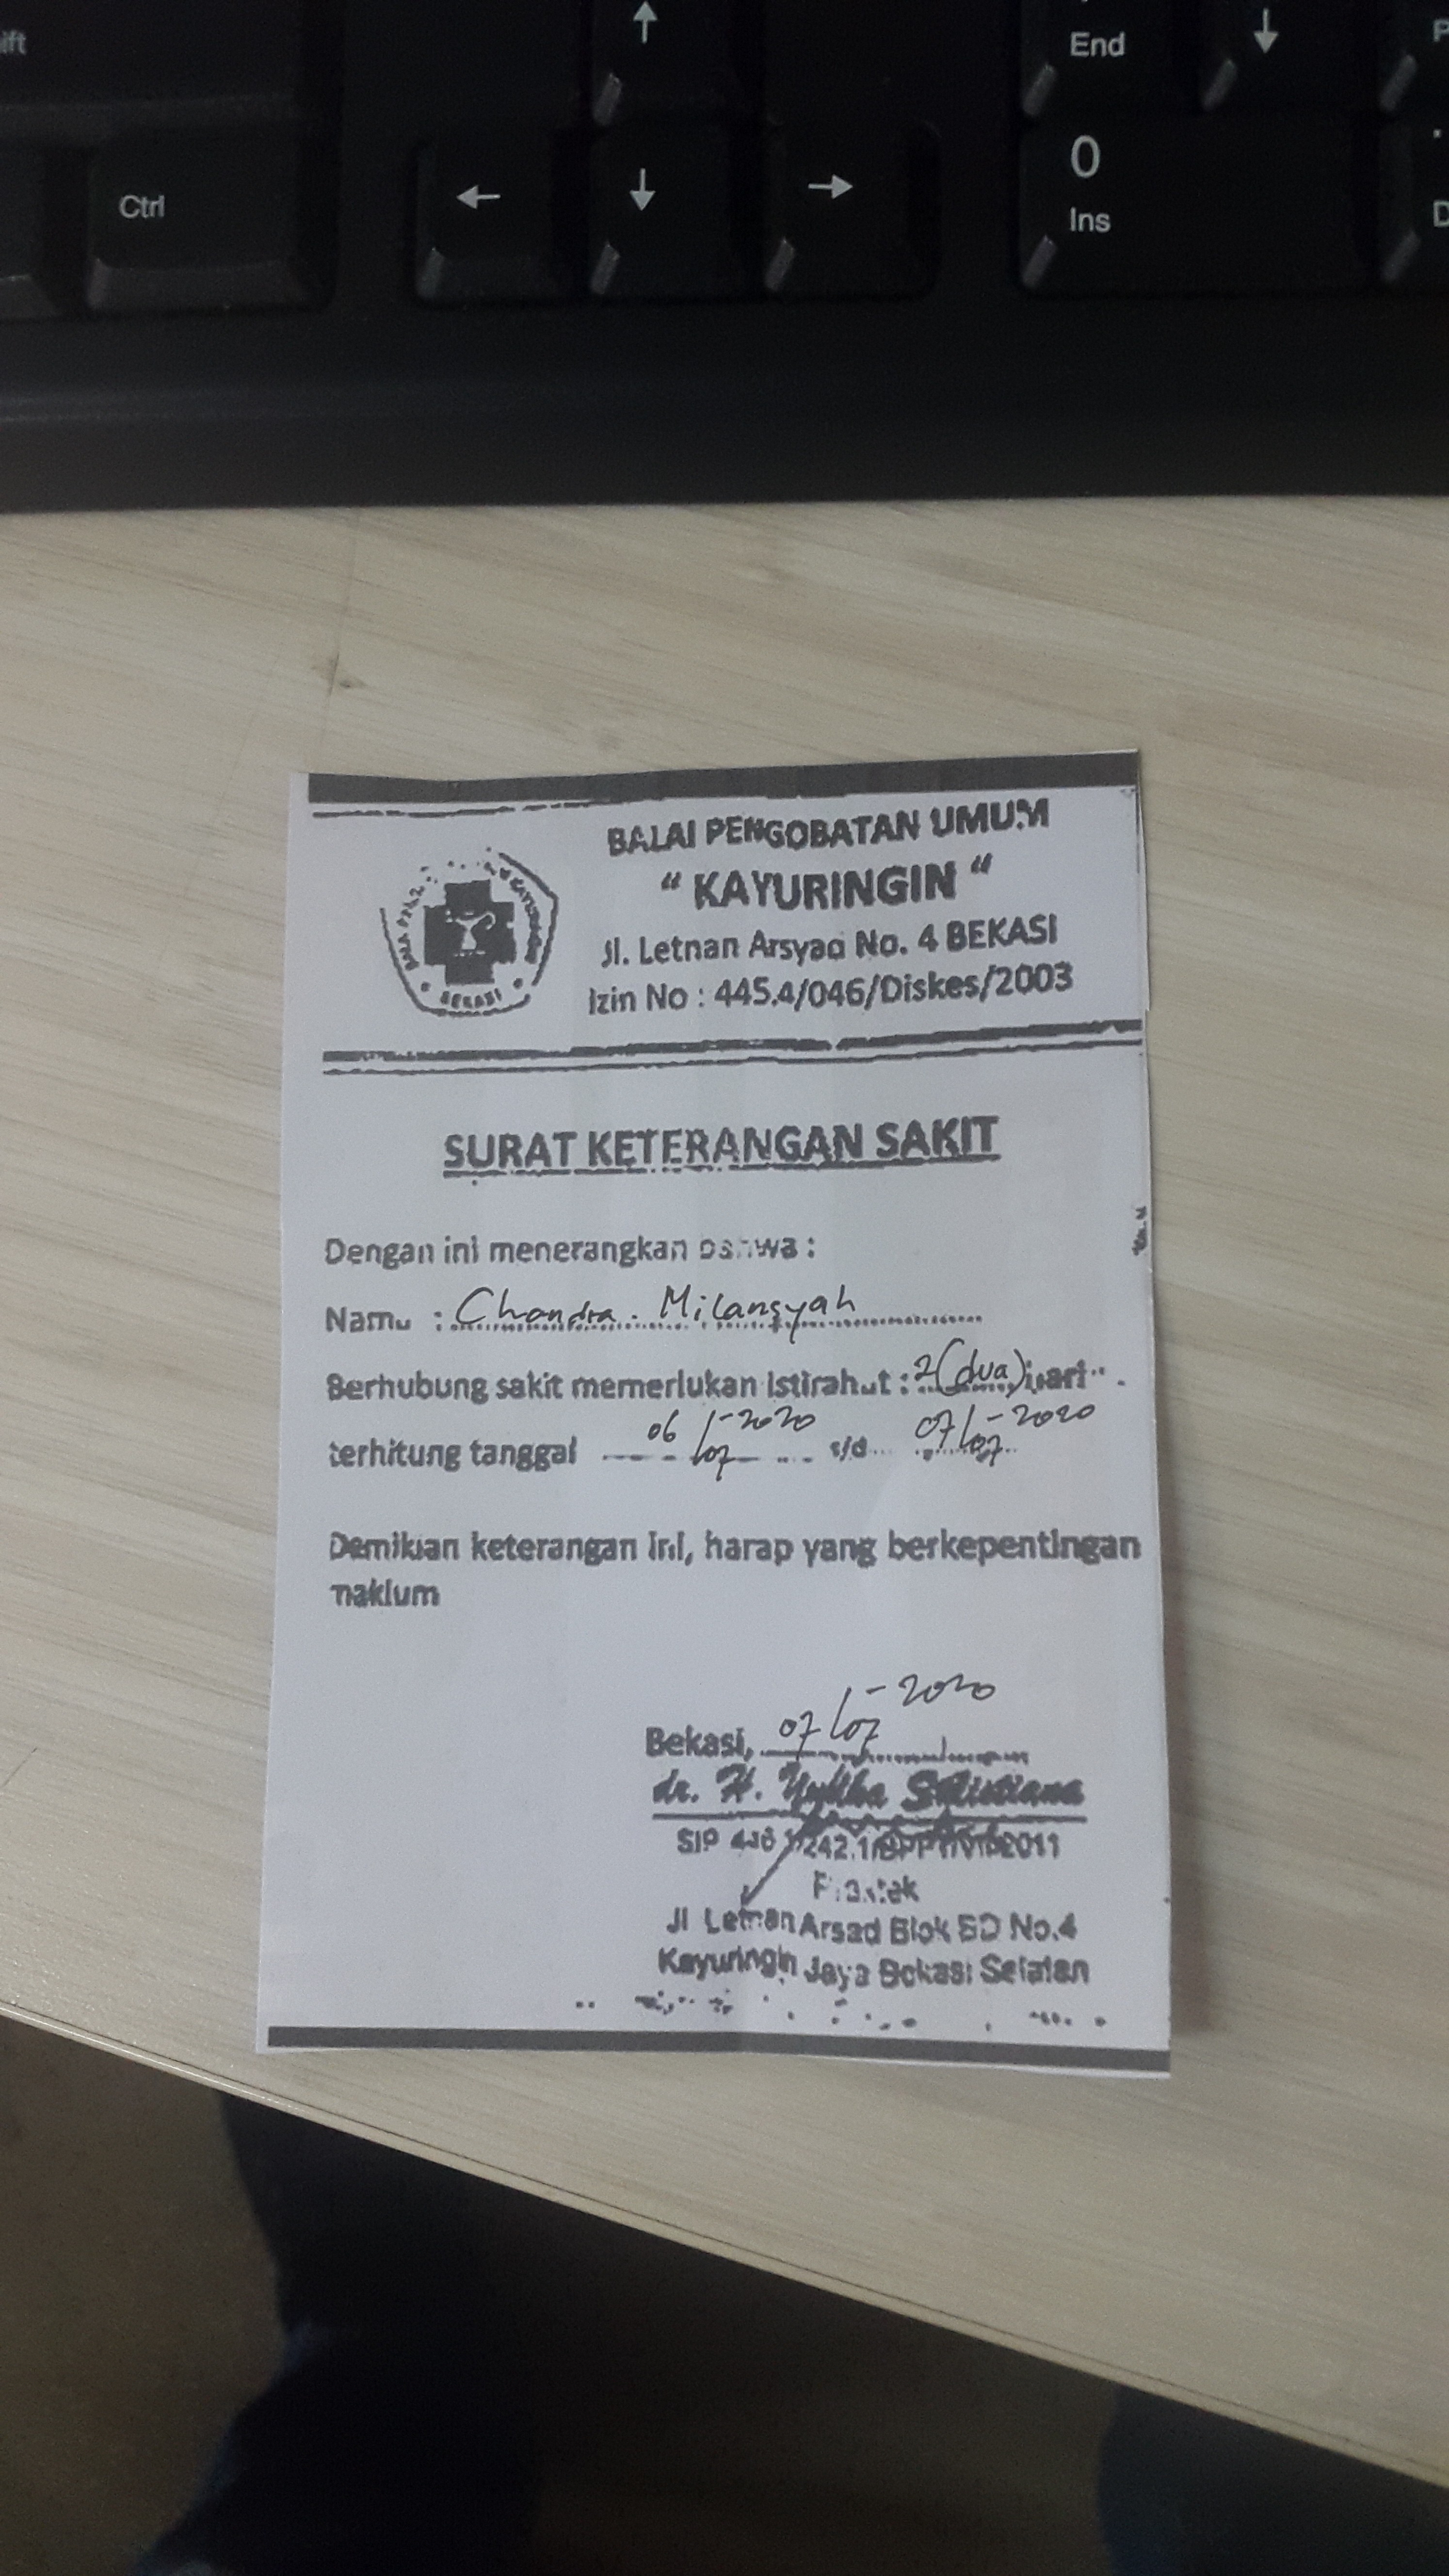 ift
End
Ctrl
0
Ins
BALAI PENGOBATAN UMUM
" KAYURINGIN "
Jl. Letnan Arsyad No. 4 BEKASI
Izin No : 445.4/046/Diskes/2003
BEKASI
SURAT KETERANGAN SAKIT
Dengan ini menerangkan bahwa :
Nama : Chandra. Milansyah
Berhubung sakit memerlukan istirahat : 2 (dua) hari
terhitung tanggal 06/07-2020 s/d 07/07-2020
Demikian keterangan ini, harap yang berkepentingan
maklum
Bekasi, 07/07-2020
dr. H.
SIP
Jl Letnan Arsad Blok BD No.4
Kayuringin Jaya Bekasi Selatan